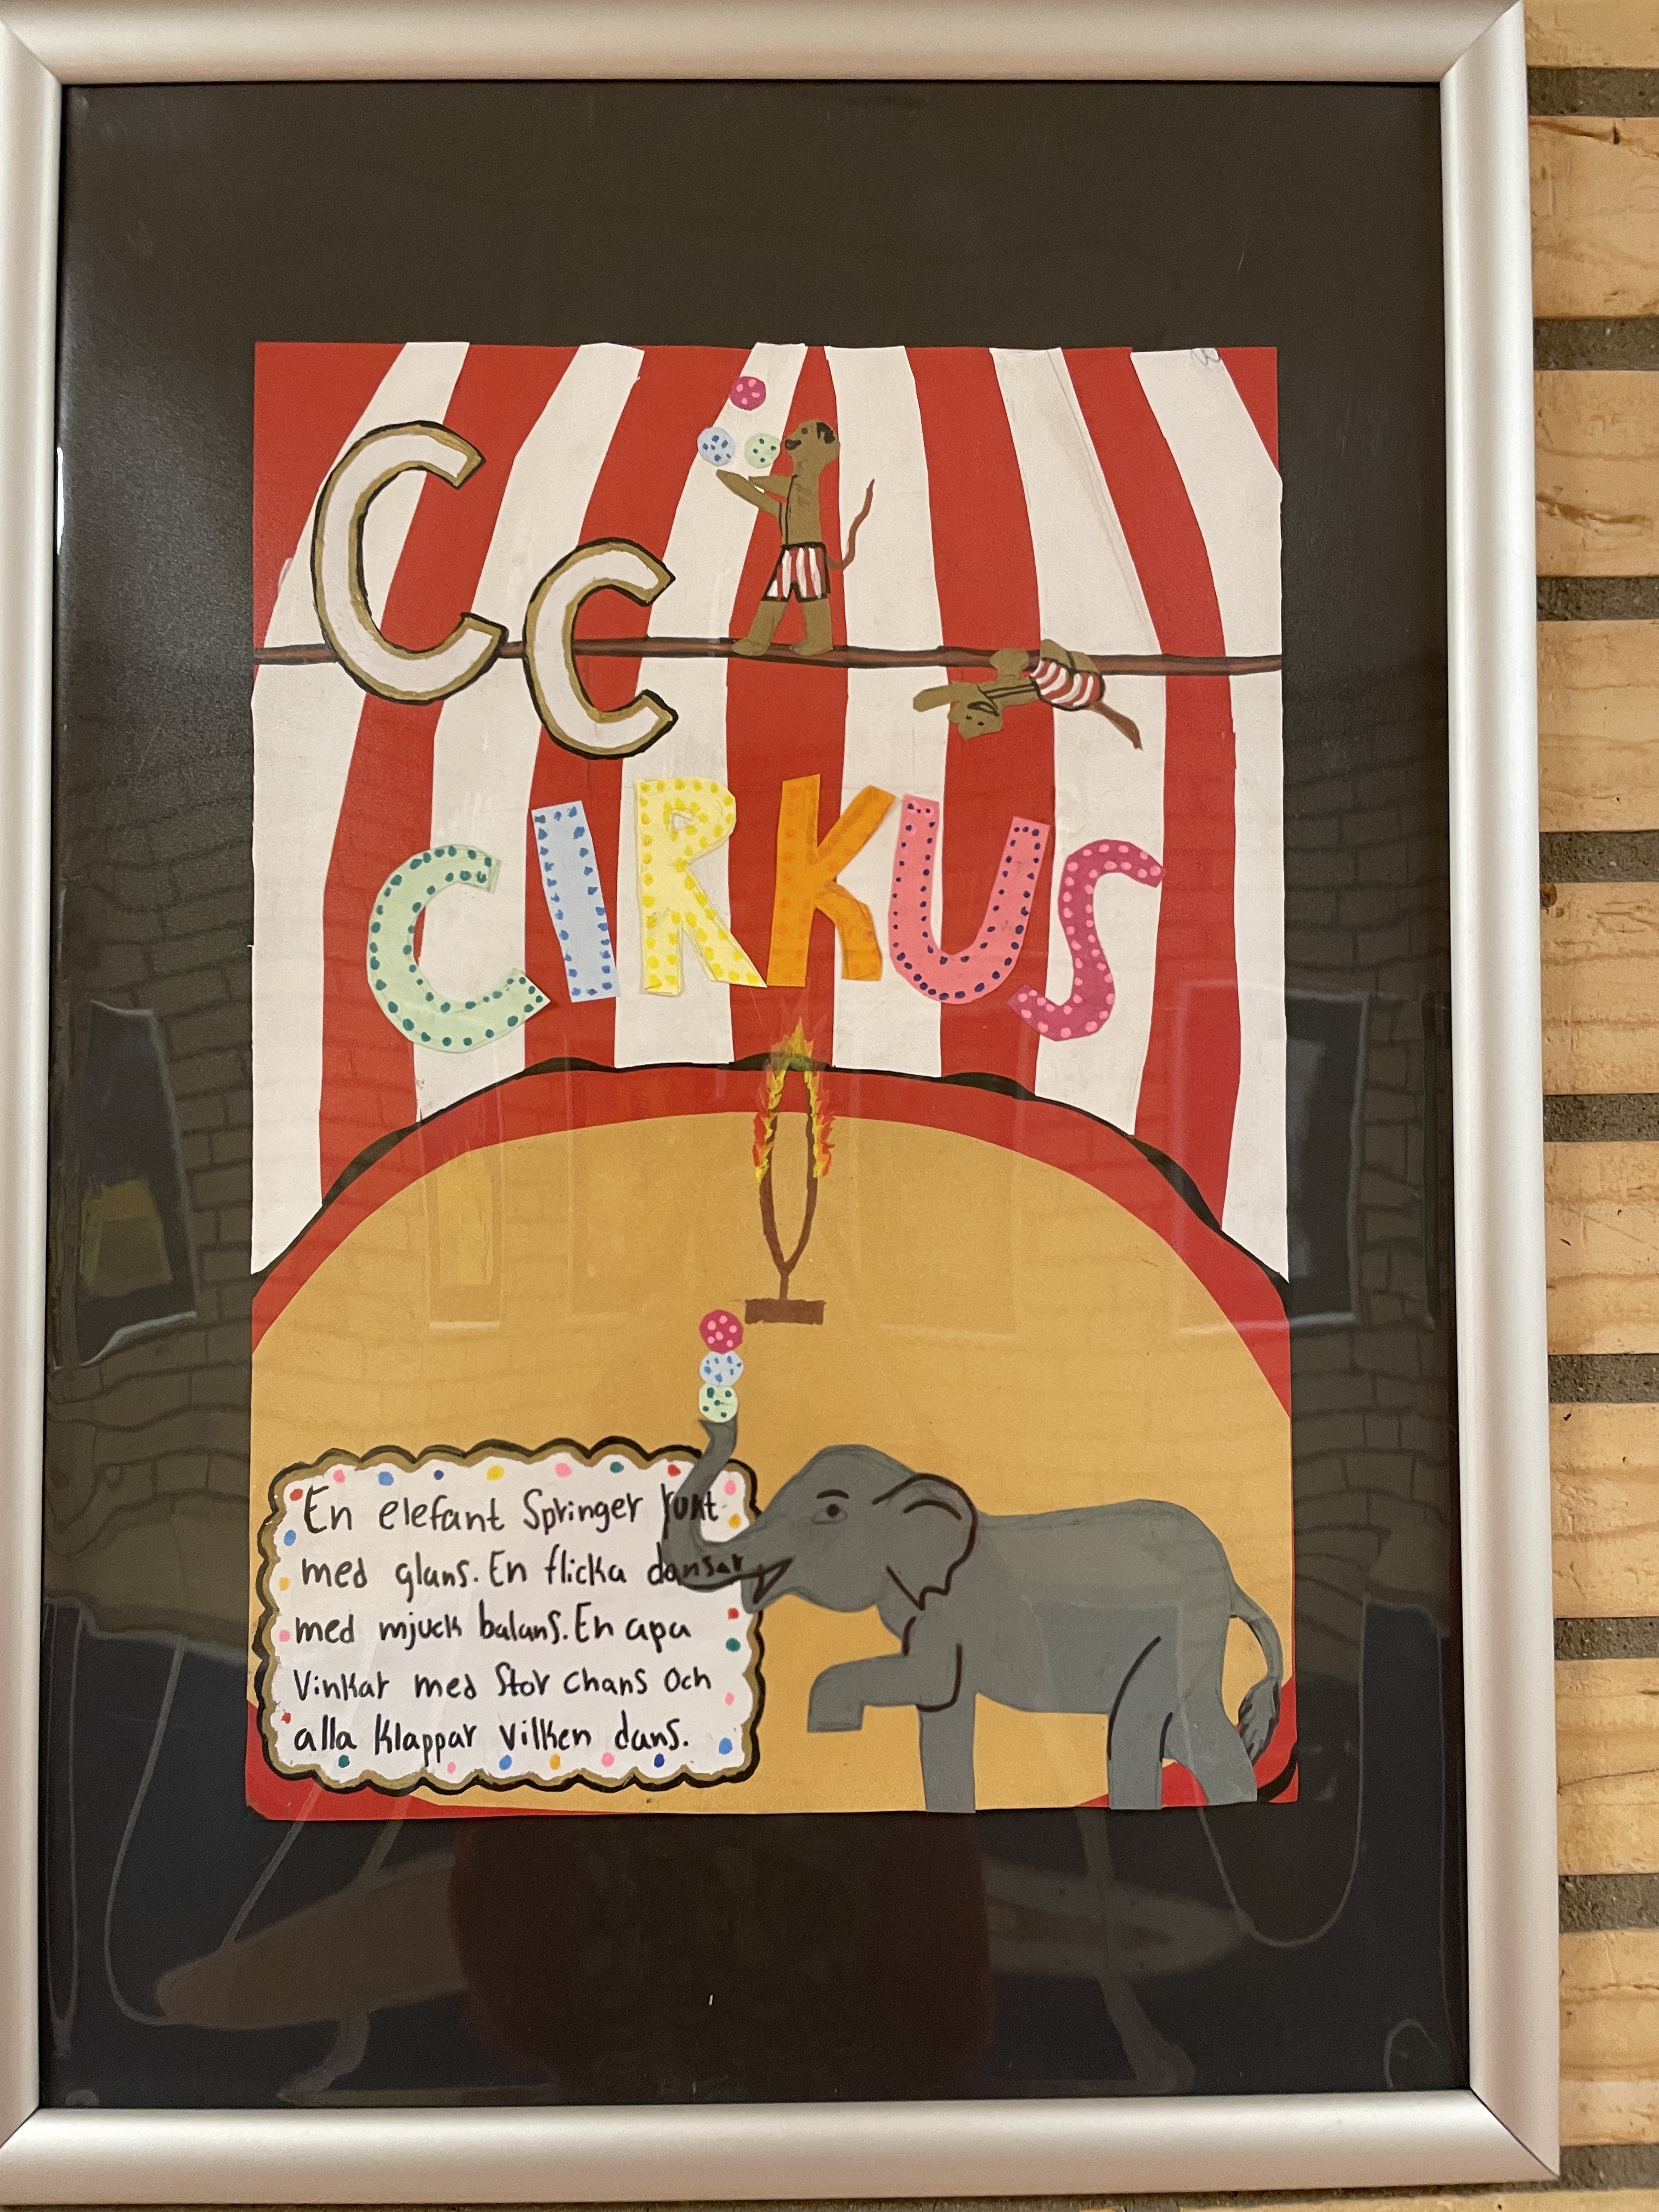 CC
CIRKUS
En elefant Springer runt
med glans. En flicka dansar
med mjuck balans. En apa
Vinkar med Stor chans Och
alla klappar vilken dans.